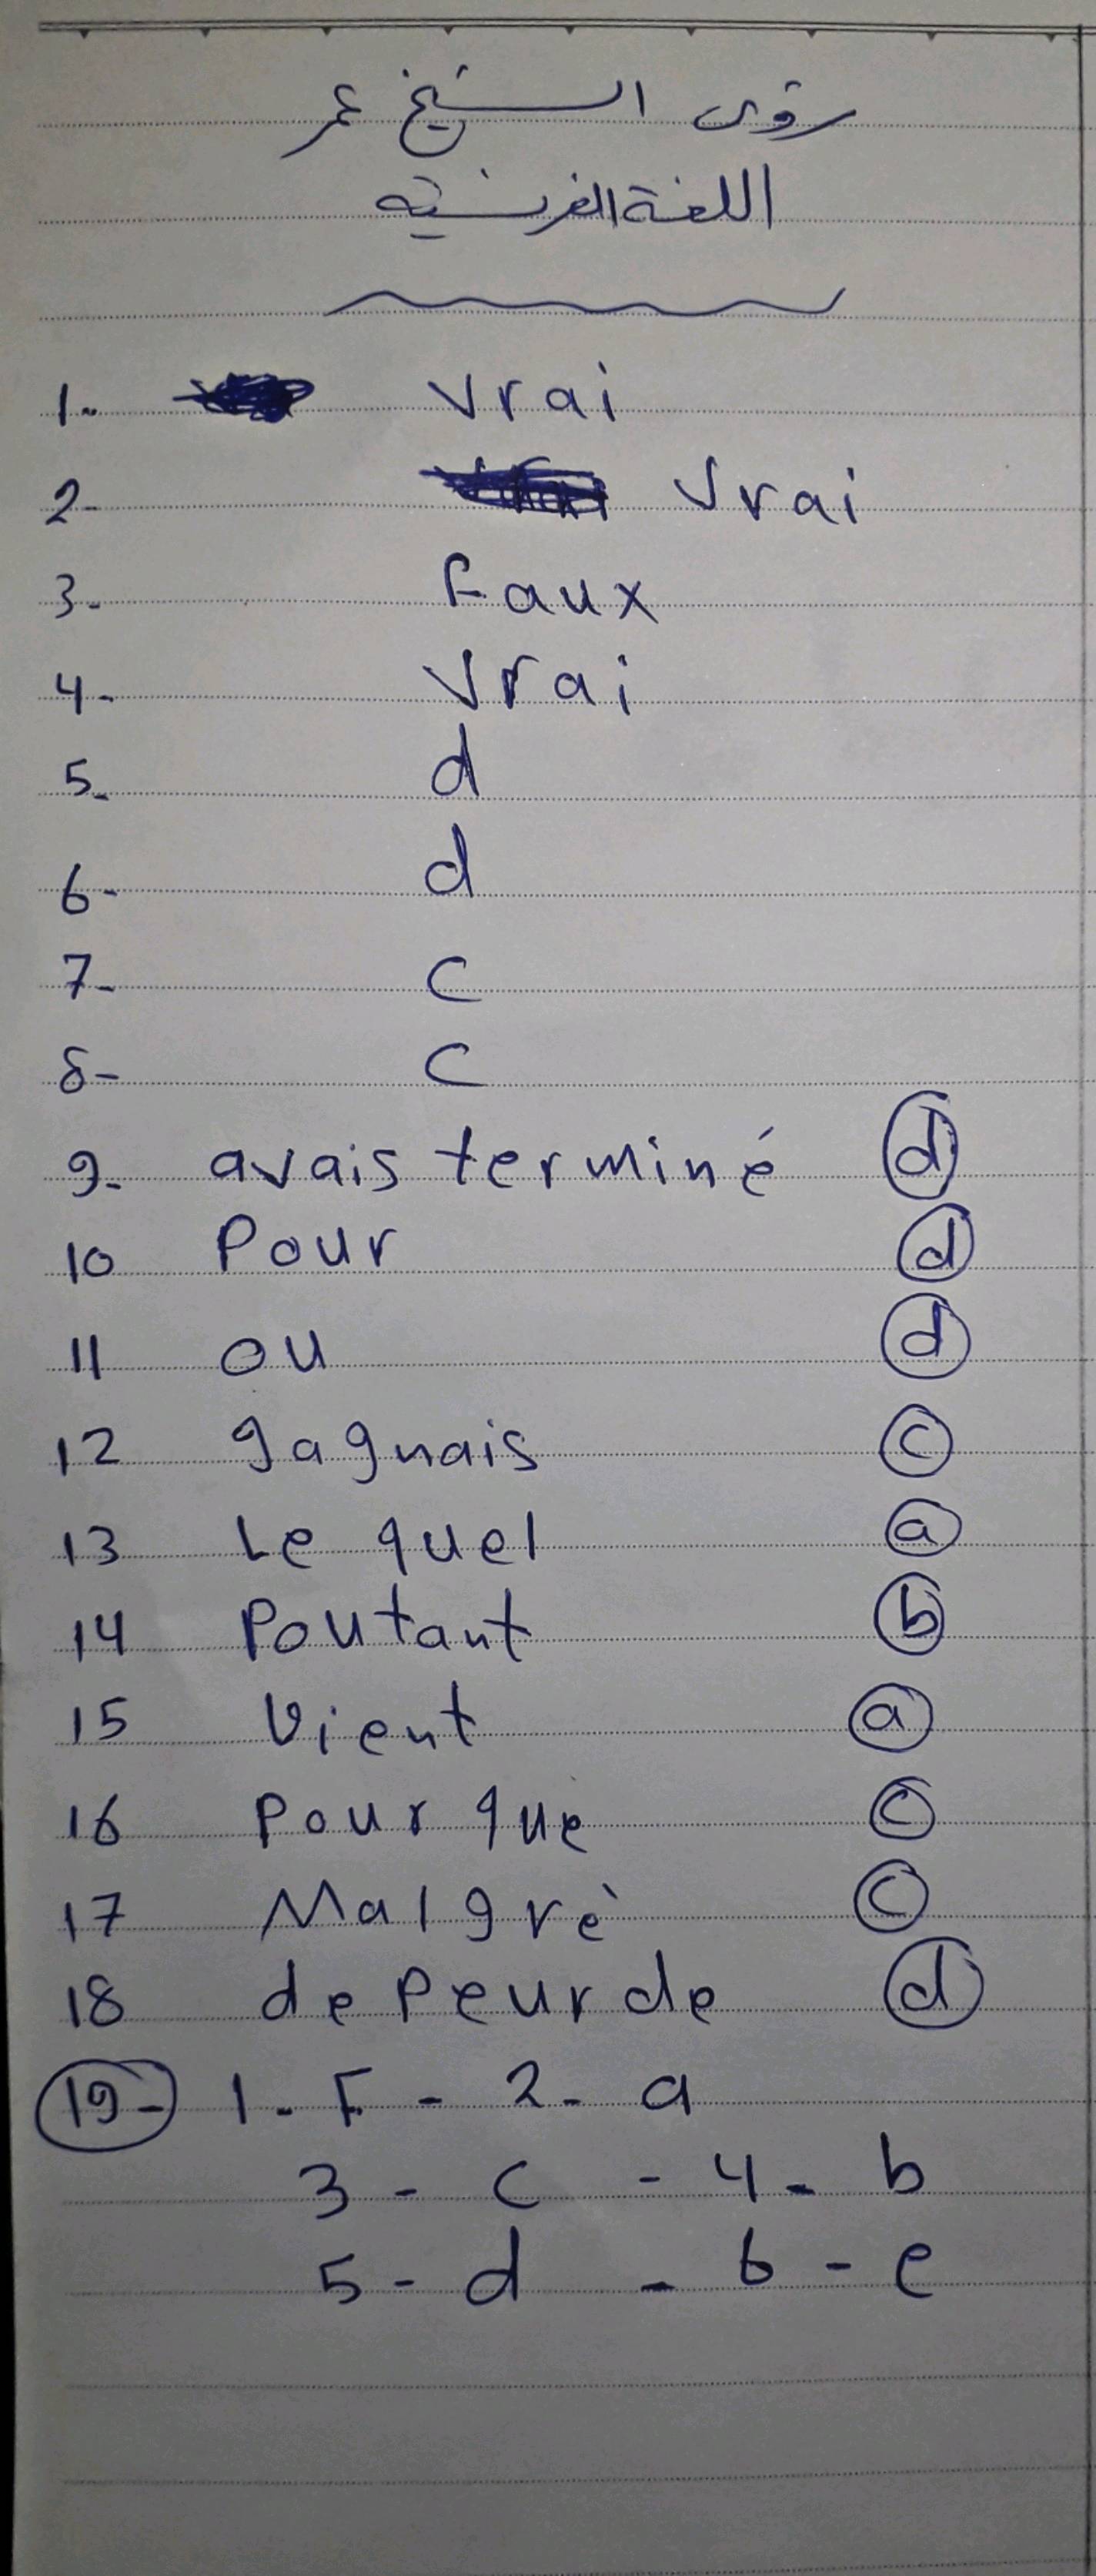 رؤى الشيخ عمر
اللغة الفرنسية
1- Vrai
2- Vrai
3- Faux
4- Vrai
5- d
6- d
7- c
8- c
9- avais terminé d
10 Pour d
11 ou d
12 gagnais c
13 Le quel a
14 Poutant b
15 Vient a
16 Pour que c
17 Malgrè c
18 de Peur de d
19- 1- F - 2- a
3 - c - 4 - b
5 - d - 6 - e